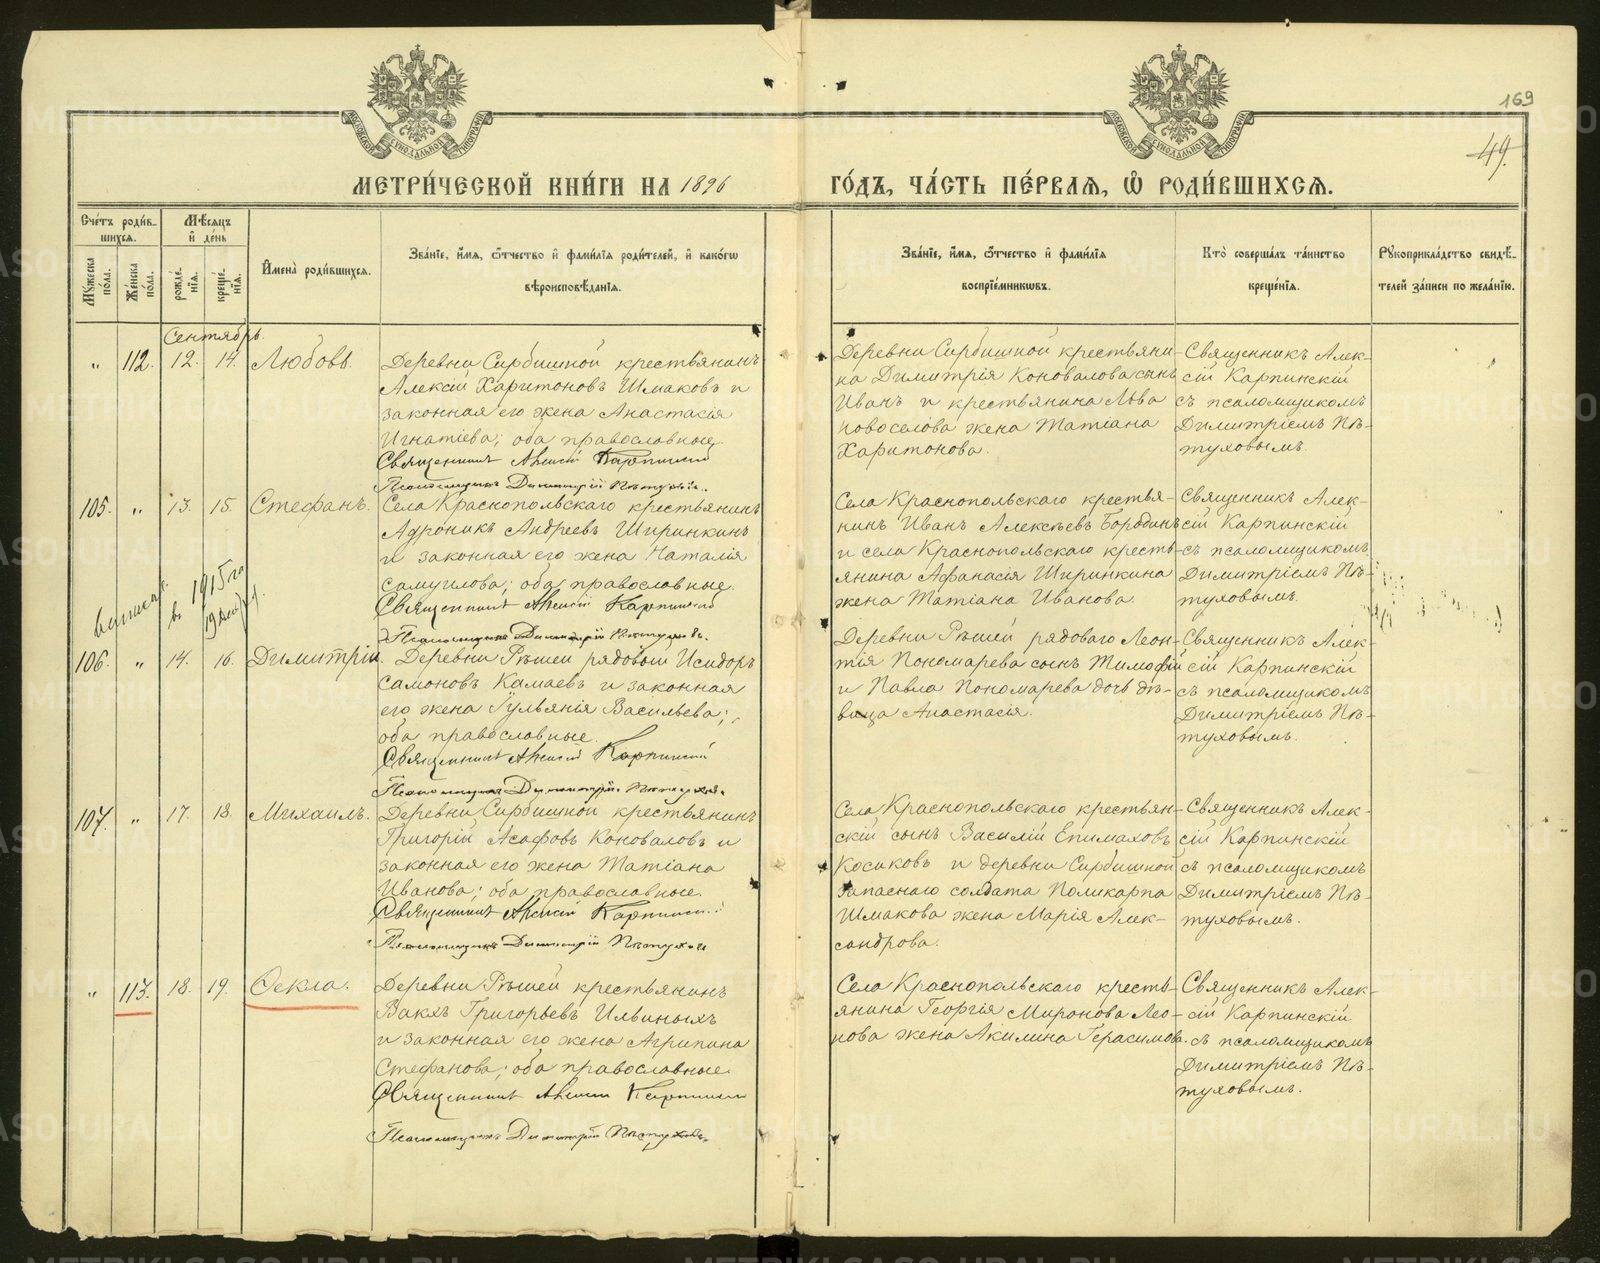 169
49.
МОСКОВСКОЙ СѴНОДАЛЬНОЙ ТИПОГРАФІИ
МОСКОВСКОЙ СѴНОДАЛЬНОЙ ТИПОГРАФІИ
МЕТРИ́ЧЕСКОЙ КНИ́ГИ НА 1896
ГО́ДЪ, ЧА́СТЬ ПЕ́РВАѦ, Ѡ҆ РОДИ́ВШИХСѦ.
Сче́тъ роди́в-
шихсѧ.
Мѣ́сѧцъ
и҆ де́нь
Мꙋ́жеска
по́ла.
Же́нска
по́ла.
рожде́-
нїѧ.
креще́-
нїѧ.
И҆мена̀ роди́вшихсѧ.
Зва́нїе, и҆́мѧ, ѻ҆́тчество и҆ фами́лїѧ роди́телей, и҆ како́гѡ
вѣроисповѣ́данїѧ.
Зва́нїе, и҆́мѧ, ѻ҆́тчество и҆ фами́лїѧ
воспрїе́мникѡвъ.
Кто̀ соверша́лъ та́инство
креще́нїѧ.
Рꙋкоприкла́дство свидѣ́-
телей за́писи по жела́нїю.
Сентябрь
„ 112. 12. 14. Любовь.
Деревни Сирбишной крестьянинъ
Алексій Харитоновъ Шмаковъ и
законная его жена Анастасія
Игнатіева; оба православные.
Священникъ Алексій Карпинскій
Псаломщикъ Димитрій Пѣтуховъ.
Деревни Сирбишной крестьяни-
на Димитрія Коновалова сынъ
Иванъ и крестьянина Льва
Новоселова жена Татіана
Харитонова.
Священникъ Алек-
сій Карпинскій
съ псаломщикомъ
Димитріемъ Пѣ-
туховымъ.
105. „ 13. 15. Стефанъ.
Села Краснопольскаго крестьянинъ
Адроникъ Андреевъ Ширинкинъ
и законная его жена Наталія
Самуилова; оба православные.
Священникъ Алексій Карпинскій
Псаломщикъ Димитрій Пѣтуховъ.
Села Краснопольскаго крестья-
нинъ Иванъ Алексѣевъ Бородинъ
и села Краснопольскаго кресть-
янина Афанасія Ширинкина
жена Татіана Иванова.
Священникъ Алек-
сій Карпинскій
съ псаломщикомъ
Димитріемъ Пѣ-
туховымъ.
в 1915 го
106. „ 14. 16. Димитрій.
Деревни Рѣшеи рядовой Исидоръ
Самоновъ Камаевъ и законная
его жена Гульянія Васильева;
оба православные.
Священникъ Алексій Карпинскій
Псаломщикъ Димитрій Пѣтуховъ.
Деревни Рѣшей рядоваго Леон-
тія Пономарева сынъ Тимофій
и Павла Пономарева дочь дѣ-
вица Анастасія.
Священникъ Алек-
сій Карпинскій
съ псаломщикомъ
Димитріемъ Пѣ-
туховымъ.
107. „ 17. 18. Михаилъ.
Деревни Сирбишной крестьянинъ
Григорій Асафовъ Коноваловъ и
законная его жена Татіана
Иванова; оба православные.
Священникъ Алексій Карпинскій
Псаломщикъ Димитрій Пѣтуховъ
Села Краснопольскаго крестьян-
скій сынъ Василій Епимаховъ
Косиковъ и деревни Сирбишной
запаснаго солдата Поликарпа
Шмакова жена Марія Алек-
сандрова.
Священникъ Алек-
сій Карпинскій
съ псаломщикомъ
Димитріемъ Пѣ-
туховымъ.
„ 113. 18. 19. Ѳекла.
Деревни Рѣшей крестьянинъ
Вакхъ Григорьевъ Ильиныхъ
и законная его жена Агрипина
Стефанова; оба православные.
Священникъ Алексій Карпинскій
Псаломщикъ Димитрій Пѣтуховъ.
Села Краснопольскаго кресть-
янина Георгія Миронова Лео-
нова жена Акилина Герасимова.
Священникъ Алек-
сій Карпинскій
съ псаломщикомъ
Димитріемъ Пѣ-
туховымъ.
METRIKI.GASO-URAL.RU